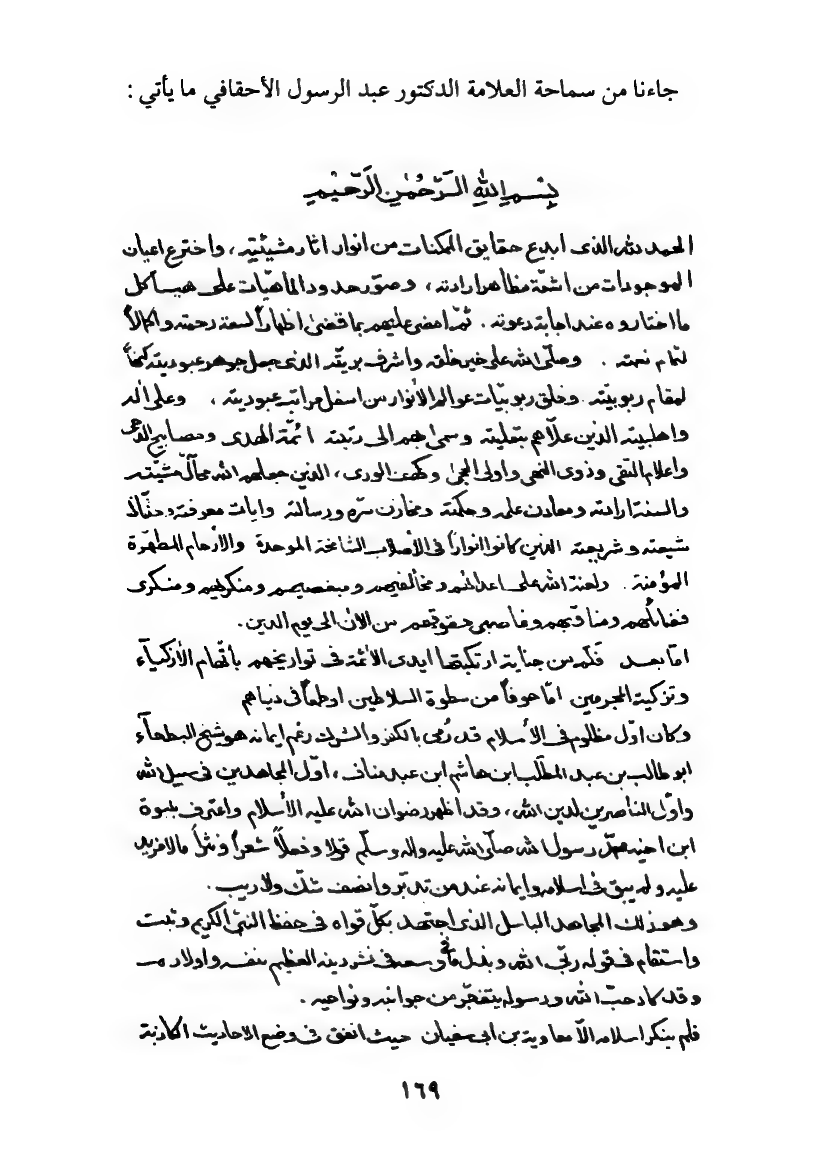 جاءنا من سماحة العلامة الدكتور عبد الرسول الأحقافي ما يأتي :
بِسْمِ اللهِ الرَّحْمٰنِ الرَّحيْمِ
الحمد لله الذى ابدع حقايق الممكنات من انوار اثار مشيئتِهِ ، واخترع اعيان
الموجودات من اشعّة مظاهر ارادته ، وصوّر حدود الماهيّات على هيـٰاكل
ما اختاروه عند اجابة دعوته . ثمّ امضى عليهم بما قضىٰ اظهاراً لسعة رحمته واكمالاً
لتمام نعمته . وصلّى الله على خير خلقه واشرف بريّته الذى جعل جوهر عبوديته كنهاً
لمقام ربوبيّته وخلق ربوبيات عوالم الأنوار من اسفل مراتب عبوديته ، وعلى اله
واهلبيته الذين علاّهم بتعليته وسمىٰ بهم الى رتبته ائمّة الهدى ومصابيح الدجى
واعلام التقى وذوى النهى واولى الحجىٰ وكهف الورى ، الذين جعلهم الله محالّ مشيّته
والسنة ارادته ومعادن علمه وحكمته ومخازن سرّه ورسالته وايات معرفته وحفّاظ
شيعته وشريعته الذين كانوا انواراً فى الأصلاب الشامخة الموحدة والأرحام المطهّرة
المؤمنة . ولعنة الله على اعدائهم ومخالفيهم ومبغضيهم ومنكريهم ومنكرى
فضائلهم ومناقبهم وغاصبى حقوقهم من الآن الى يوم الدين .
امّا بعـد فكم من جناية ارتكبتها ايدى الأئمة فى تواريخهم بأتّهام الأزكياء
وتزكية المجرمين امّا خوفاً من سطوة السلاطين او طمعاً فى دنياهم
وكان اوّل مظلوم فى الأسلام قد رُمى بالكفر والشرك رغم ايمانه هو شيخ البطحآء
ابو طالب بن عبد المطّلب ابن هاشم ابن عبد مناف ، اوّل المجاهدين فى سبيل الله
واوّل الناصرين لدين الله ، وقد اظهر رضوان الله عليه الأسلام واعترف بنبوة
ابن اخيه محمّد رسول الله صلّى الله عليه واله وسلّم قولا وفعلاً شعراً ونثراً ما لا مزيد
عليه ولم يبق فى اسلامه وايمانه عند من تدبّر وانصف شكّ ولا ريب .
وهو ذلك المجاهد الباسل الذى اجتهد بكلّ قواه فى حفظ النبى الكريم وثبت
واستقام فى قوله ربّى الله وبذل ما فى وسعه فى نشر دينه العظيم بنفسه واولاده
وقد كاد حبّ الله ورسوله يتفجّر من جوانبه ونواحيه .
فلم ينكر اسلامه الاّ معاوية بن ابى سفيان حيث انفق فى وضع الاحاديث الكاذبة
١٦٩